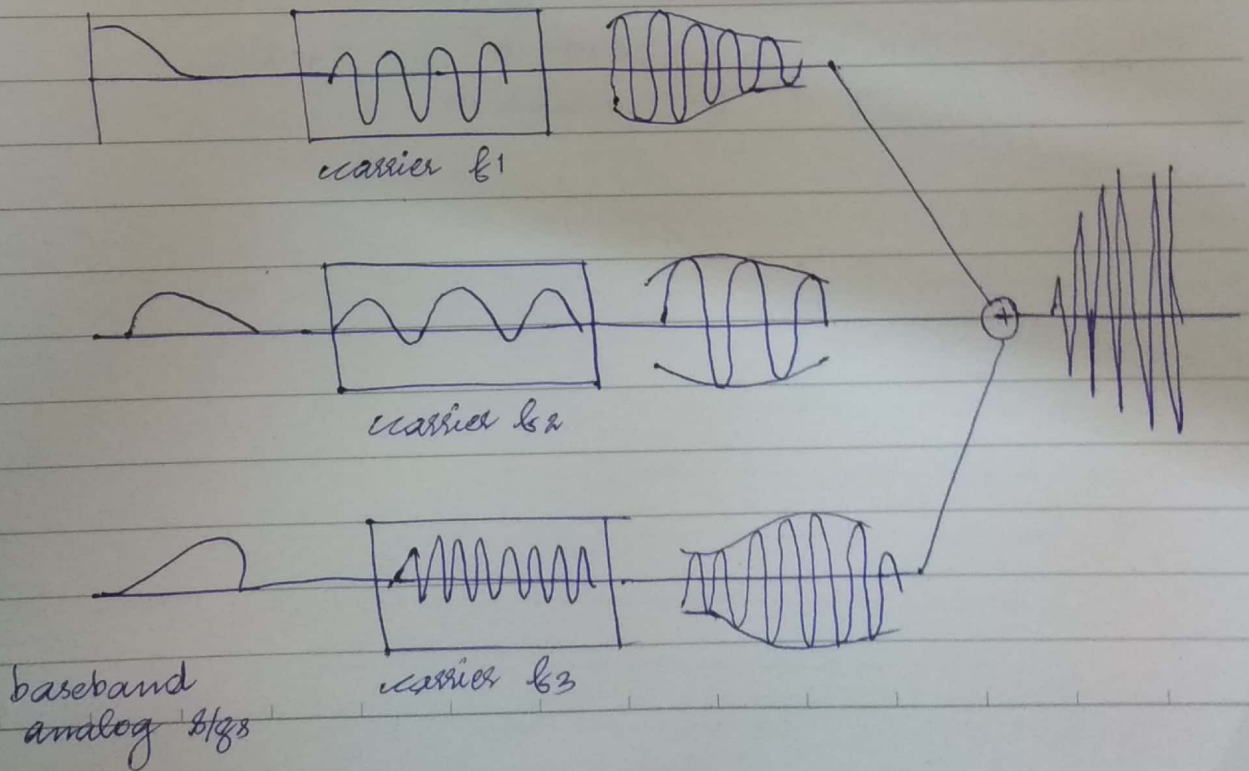 carrier f1
carrier f2
+
carrier f3
baseband
analog s/gs